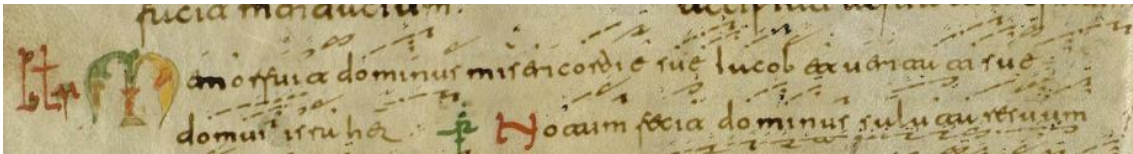 Memor fuit dominus misericordie sue iacob et ueritati sue
domus israhel Notum fecit dominus salutare suum